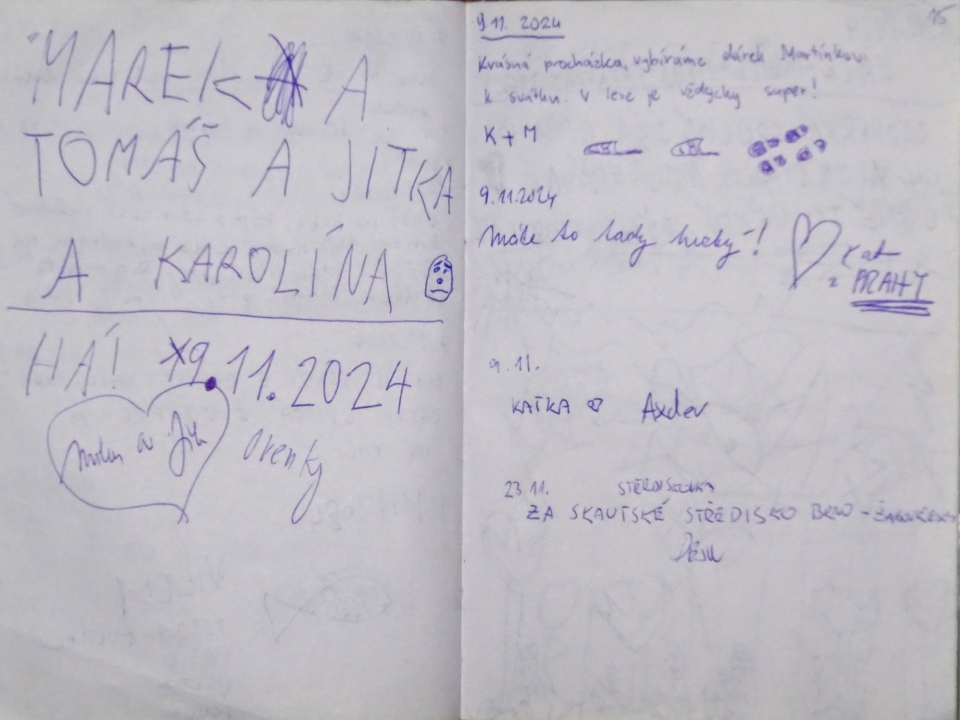 MAREK A
TOMÁŠ A JITKA
A KAROLÍNA
HÁJ 9.11.2024
a
15
9 11. 2024
Krásná procházka, vybíráme dárek Martínkovi
k svátku. V lese je vždycky super!
K + M
9.11.2024
Máte to tady hezký!
z PRAHY
9.11.
KATKA Axdev
23.11.
ZA SKAUTSKÉ STŘEDISKO BRNO -